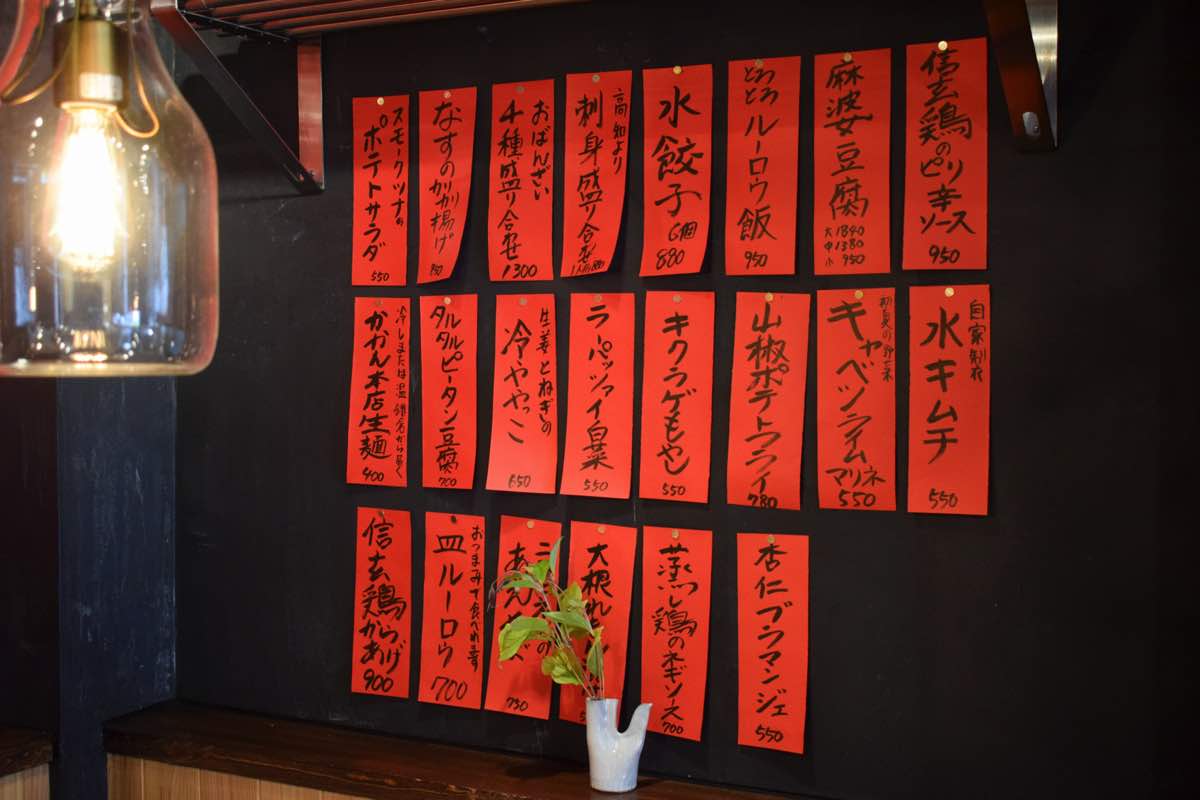 信玄鶏のピリ辛ソース
950
麻婆豆腐
大1840
中1380
小 950
とろとろ
ルーロウ飯
950
水餃子
6個
880
高知より
刺身盛り合せ
おばんざい
4種盛り合せ
1300
なすのカリカリ揚げ
スモークツナの
ポテトサラダ
550
自家製
水キムチ
550
初夏の野菜
キャベツライム
マリネ
550
山椒ポテトフライ
780
キクラゲもやし
550
ラーパーツァイ白菜
550
生姜とねぎの
冷ややっこ
650
タルタルピータン豆腐
700
冷しまたは温 鎌倉から届く
かかん本店生麺
400
杏仁ブラマンジェ
550
蒸し鶏のネギソース
700
大根
730
おつまみで食べれます
皿ルーロウ
700
信玄鶏からあげ
900